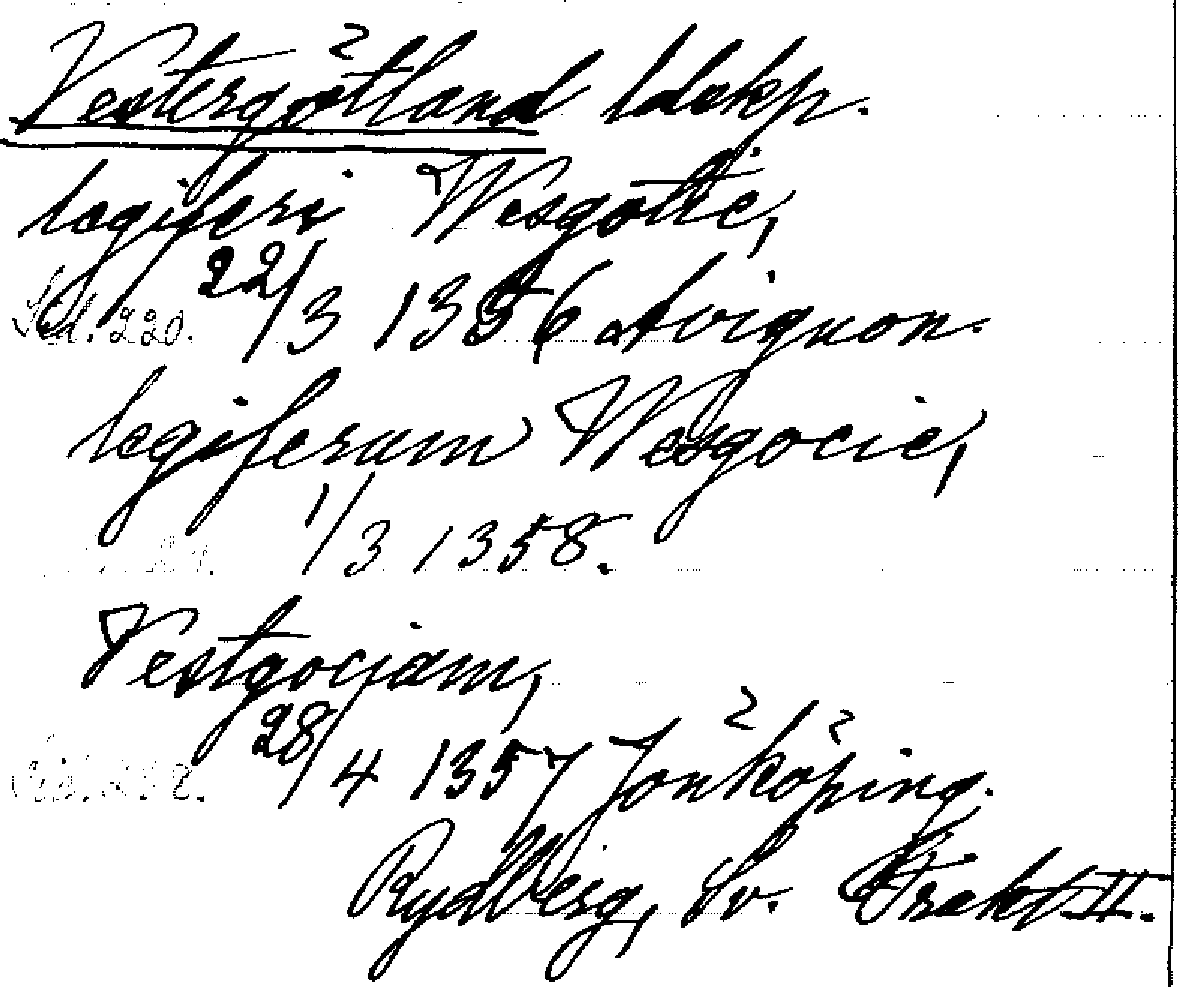 Vestergötland ldskp.
legiferi Wesgötie,
Sid. 220. 22/3 1356 Avignon.
legiferum Wesgocie,
1/3 1358.
Vestgociam,
28/4 1357 Jönköping.
Rydberg, Sv. Trakt. II.